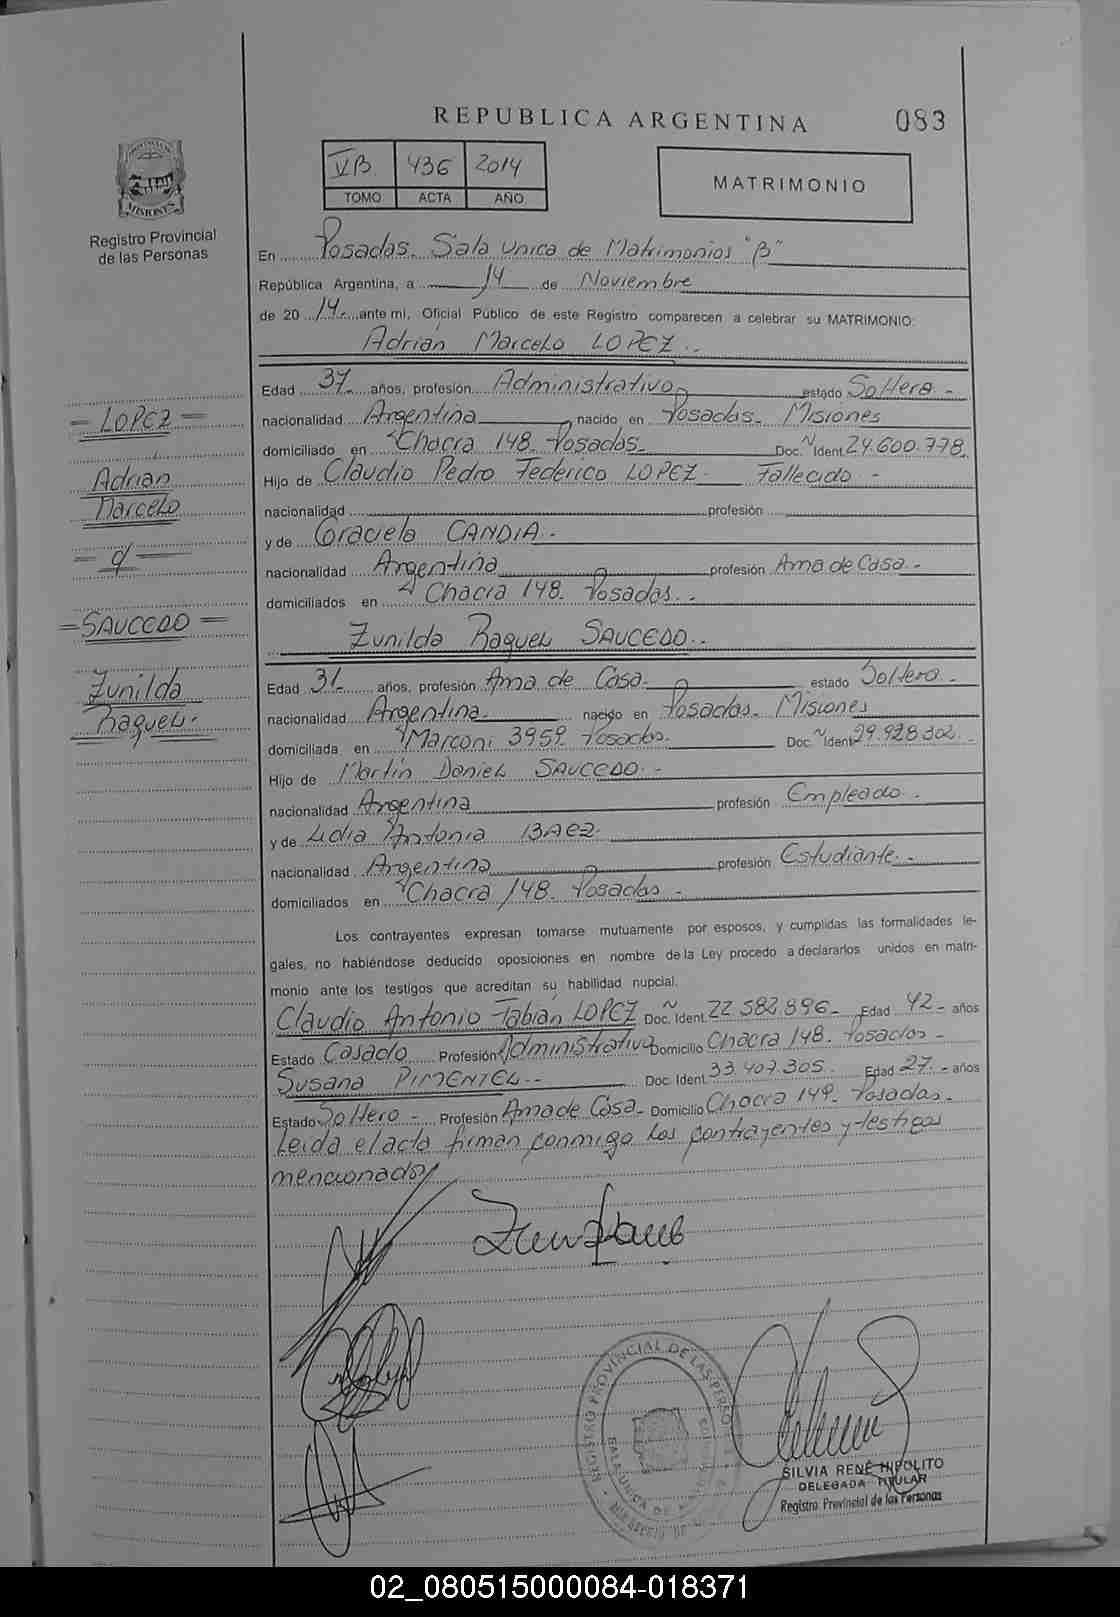 REPUBLICA ARGENTINA 083
VB 436 2014
TOMO ACTA AÑO
MATRIMONIO
PROVINCIA DE MISIONES
Registro Provincial
de las Personas
En Posadas. Sala Unica de Matrimonios "B"
República Argentina, a 14 de Noviembre
de 20 14 ante mí, Oficial Público de este Registro comparecen a celebrar su MATRIMONIO:
Adrián Marcelo LOPEZ
Edad 37 años, profesión Administrativo estado Soltero
nacionalidad Argentina nacido en Posadas. Misiones
domiciliado en Chacra 148. Posadas Doc. Ident 24.600.778
Hijo de Claudio Pedro Federico LOPEZ Fallecido
nacionalidad profesión
y de Graciela CANDIA
nacionalidad Argentina profesión Ama de Casa
domiciliados en Chacra 148. Posadas
Zunilda Raquel SAUCEDO
Edad 31 años, profesión Ama de Casa estado Soltera
nacionalidad Argentina nacido en Posadas. Misiones
domiciliada en Marconi 3959. Posadas Doc. Ident 29.928.302
Hijo de Martín Daniel SAUCEDO
nacionalidad Argentina profesión Empleado
y de Lidia Antonia BAEZ
nacionalidad Argentina profesión Estudiante
domiciliados en Chacra 148. Posadas
Los contrayentes expresan tomarse mutuamente por esposos, y cumplidas las formalidades le-
gales, no habiéndose deducido oposiciones en nombre de la Ley procedo a declararlos unidos en matri-
monio ante los testigos que acreditan su habilidad nupcial.
Claudio Antonio Fabián LOPEZ Doc. Ident. 22.582.896 Edad 42 años
Estado Casado Profesión Administrativo Domicilio Chacra 148. Posadas
Susana PIMENTEL Doc. Ident. 33.407.305 Edad 27 años
Estado Soltero Profesión Ama de Casa Domicilio Chacra 149. Posadas
Leída el acta firman conmigo los contrayentes y testigos
mencionados
LOPEZ
Adrián
Marcelo
SAUCEDO
Zunilda
Raquel
REGISTRO PROVINCIAL DE LAS PERSONAS
SALA UNICA DE
SILVIA RENÉ HIPOLITO
DELEGADA TITULAR
Registro Provincial de las Personas
02_080515000084-018371